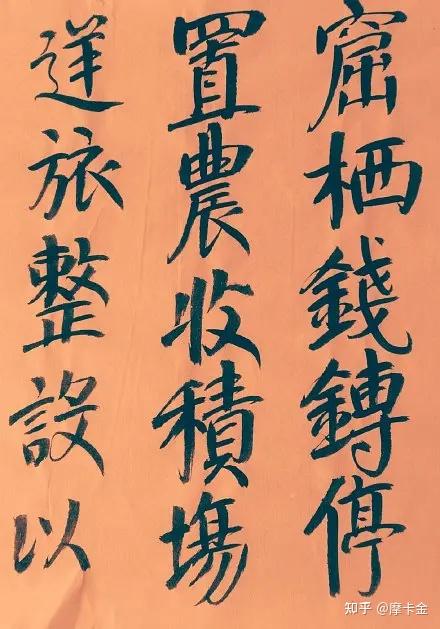 窟栖錢鎛停
置農收積塲
逆旅整設以
知乎 @摩卡金